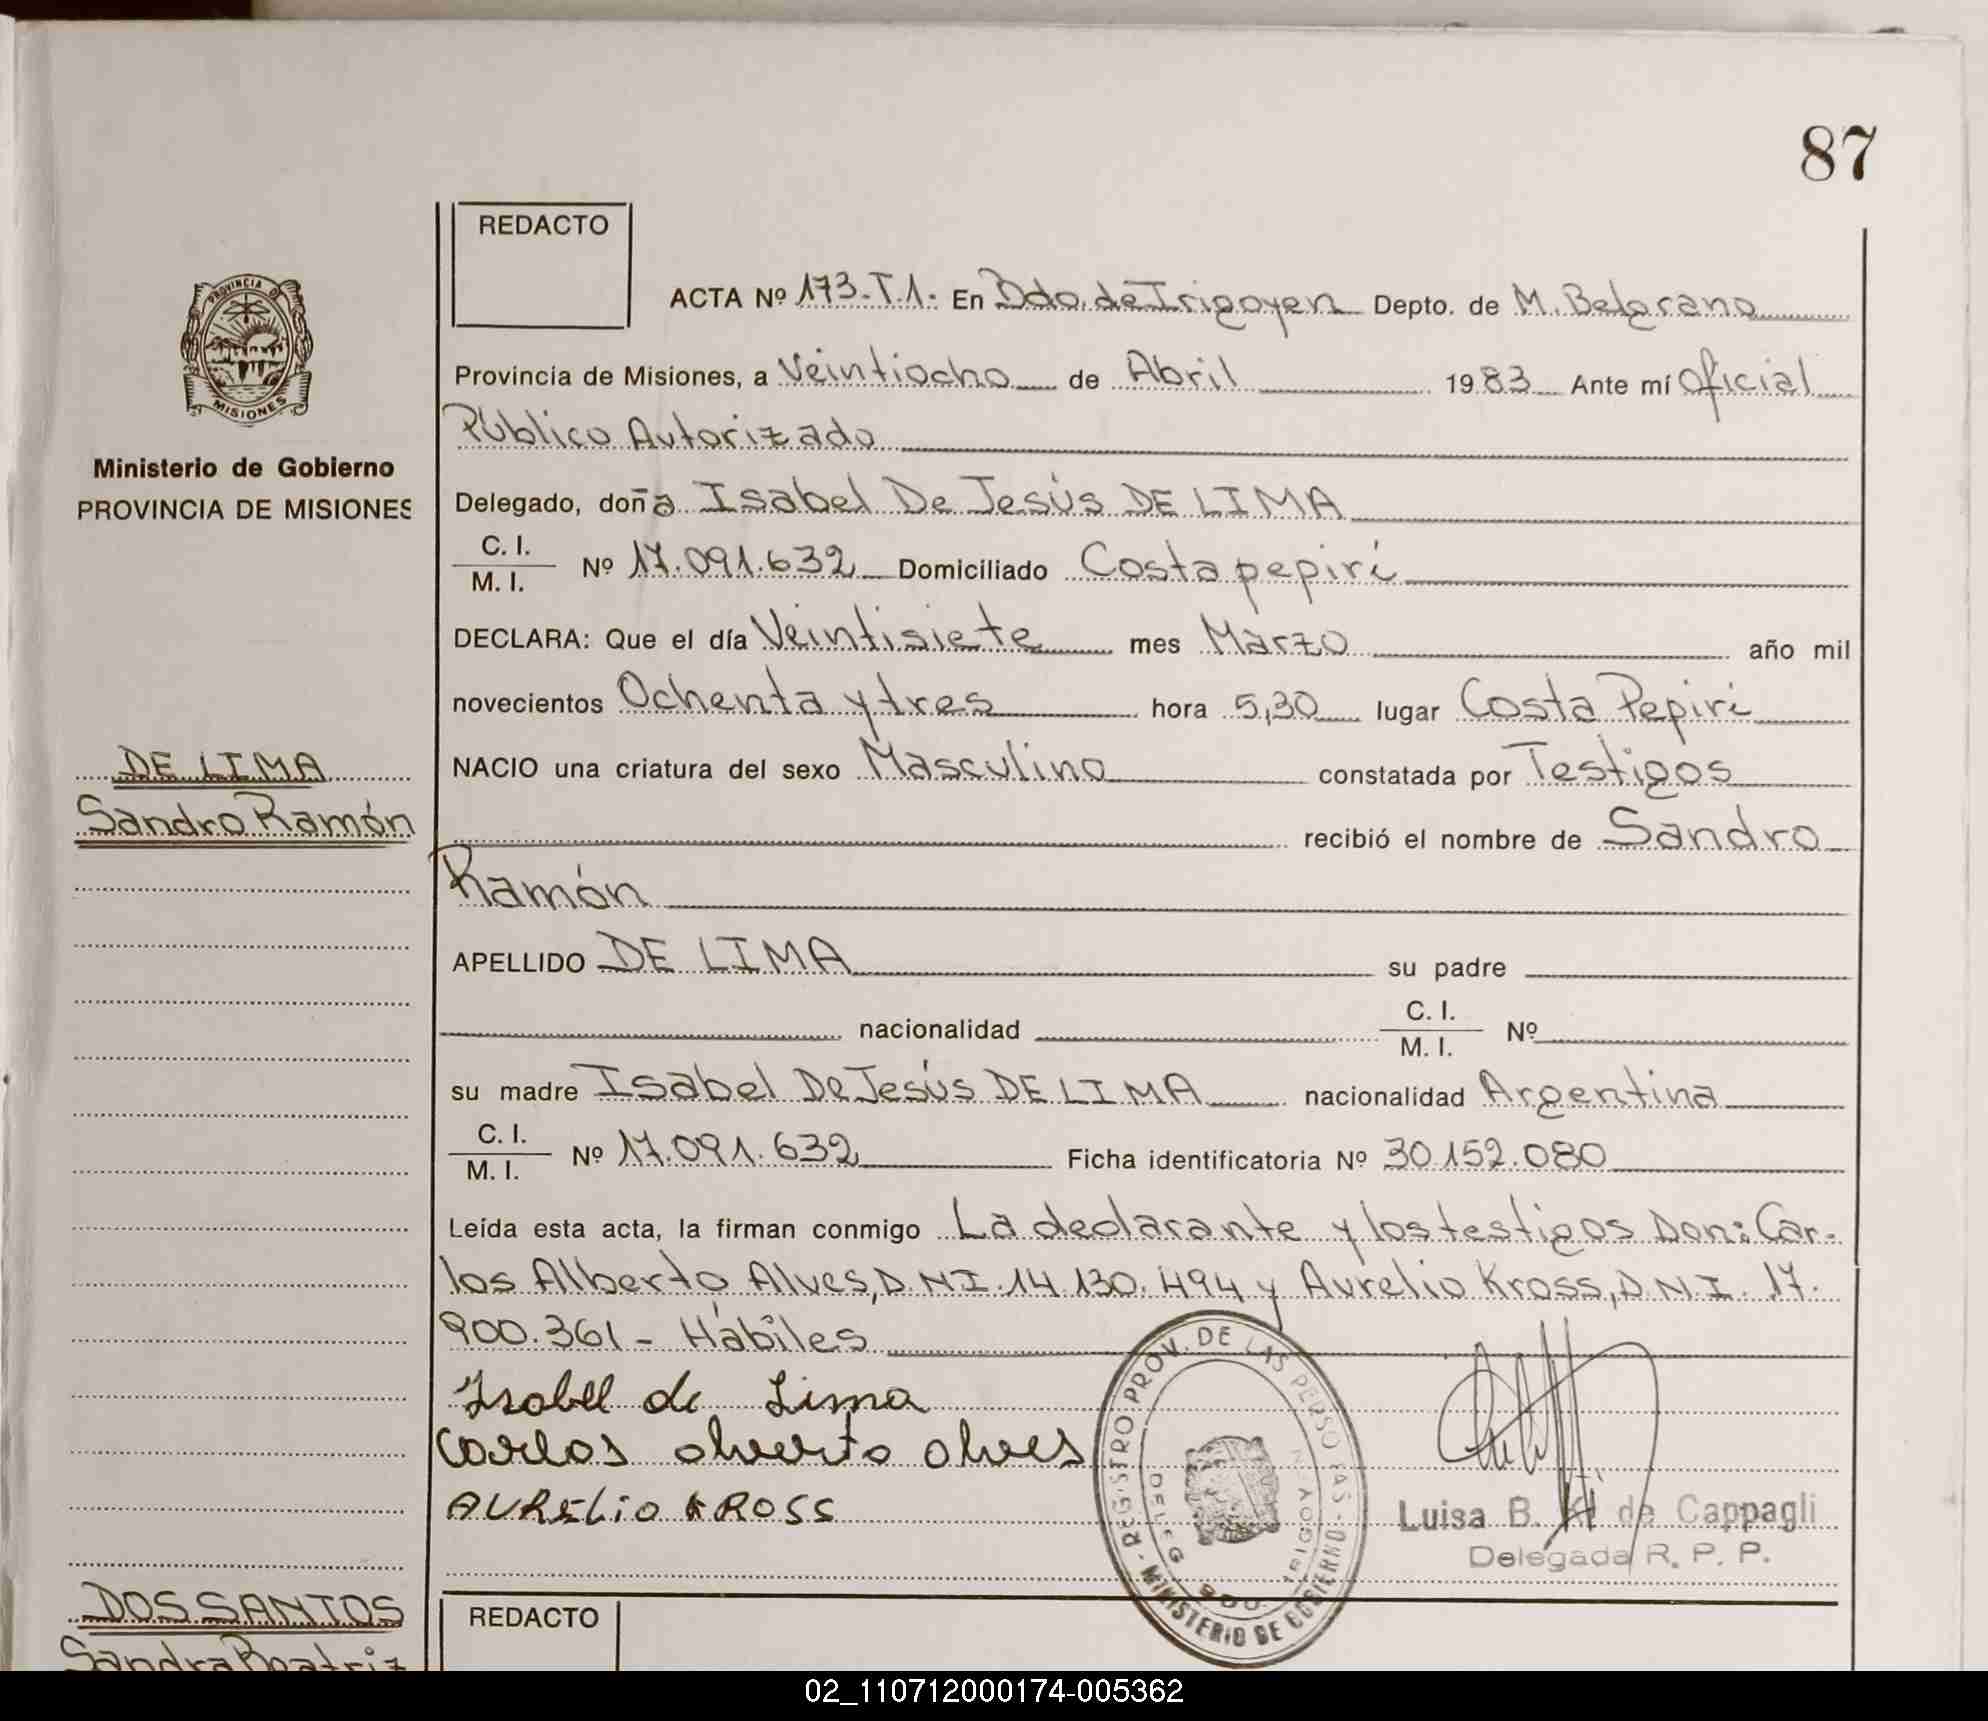 87
REDACTO
ACTA Nº 173-T.1. En Bdo. de Irigoyen Depto. de M. Belgrano
Provincia de Misiones, a Veintiocho de Abril 1983 Ante mí Oficial
Público Autorizado
Delegado, doña Isabel De Jesús DE LIMA
C. I.
M. I. Nº 17.091.632 Domiciliado Costa pepirí
DECLARA: Que el día Veintisiete mes Marzo año mil
novecientos Ochenta y tres hora 5,30 lugar Costa Pepirí
NACIO una criatura del sexo Masculino constatada por Testigos
recibió el nombre de Sandro
Ramón
APELLIDO DE LIMA su padre
nacionalidad C. I. Nº
M. I.
su madre Isabel De Jesús DE LIMA nacionalidad Argentina
C. I.
M. I. Nº 17.091.632 Ficha identificatoria Nº 30.152.080
Leída esta acta, la firman conmigo La declarante y los testigos Don: Car-
los Alberto Alves, D.N.I. 14.130.494 y Aurelio Kross, D.N.I. 17.
900.361 - Hábiles
Isabel de Lima
Carlos alverto alves
AURELIO KROSS
REGISTRO PROV. DE LAS PERSONAS
MINISTERIO DE GOBIERNO
Luisa B. K. de Cappagli
Delegada R. P. P.
PROVINCIA DE
MISIONES
Ministerio de Gobierno
PROVINCIA DE MISIONES
DE LIMA
Sandro Ramón
DOS SANTOS
Sandra Beatriz
REDACTO
02_110712000174-005362